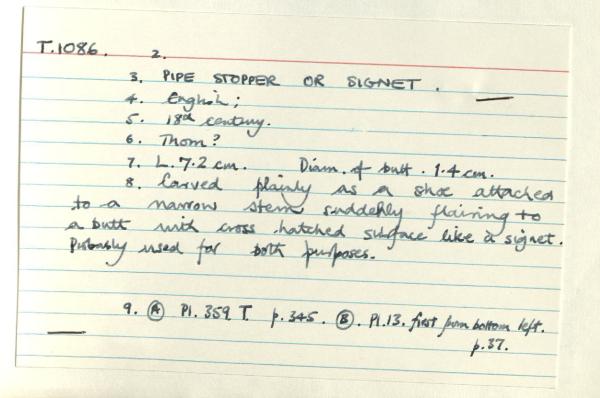 T.1086. 2.
3. PIPE STOPPER OR SIGNET.
4. English;
5. 18th century.
6. Thorn?
7. L. 7.2 cm. Diam. of butt. 1.4 cm.
8. Carved plainly as a shoe attached
to a narrow stem suddenly flairing to
a butt with cross hatched surface like a signet.
Probably used for both purposes.
9. Ⓐ Pl. 359 T. p.345. Ⓑ. Pl.13. first from bottom left.
p.37.